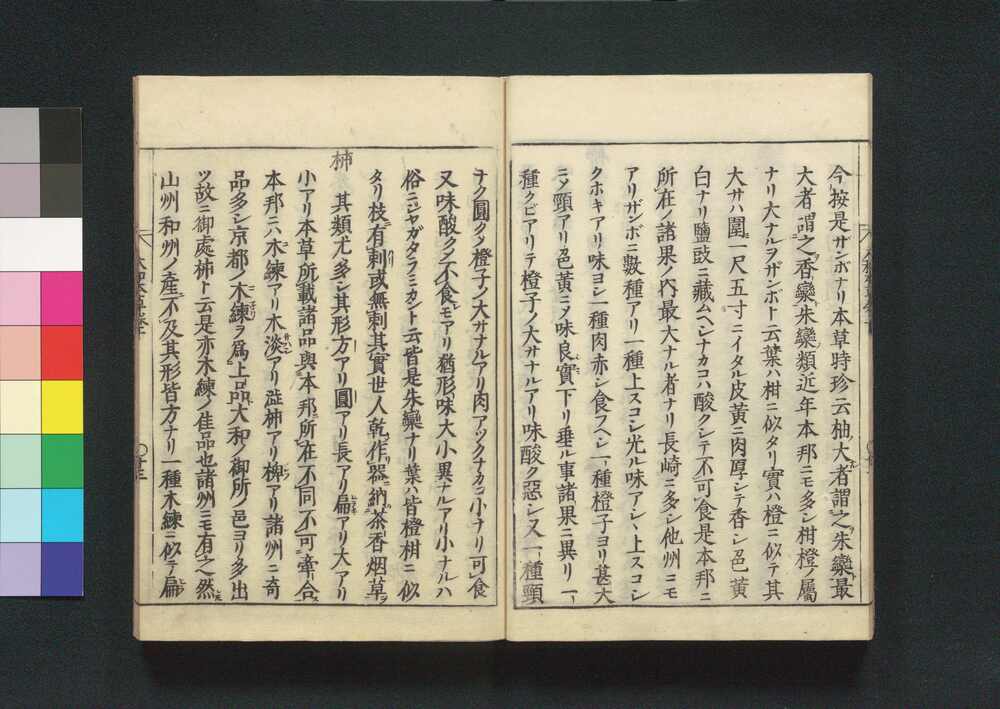 今按是サンボナリ本草時珍云柚大者謂之朱欒最
大者謂之香欒朱欒類近年本邦ニモ多シ柑橙ノ屬
ナリ大ナルヲザンボト云葉ハ柑ニ似タリ實ハ橙ニ似テ其
大サハ圍一尺五寸ニイタル皮黄ニ肉厚シテ香シ色黄
白ナリ鹽豉ニ藏ムヘシナカコハ酸クシテ不可食是本邦ニ
所在ノ諸果ノ内最大ナル者ナリ長崎ニ多シ他州ニモ
アリザンボニ數種アリ一種上スコシ光ル味アシ上スコシ
クホキアリ味ヨシ一種肉赤シ食フヘシ一種橙子ヨリ甚大
ニシテ頸アリ色黄ニシテ味良實下リ垂ル事諸果ニ異リ一
種クビアリテ橙子ノ大サナルアリ味酸ク惡シ又一種頸
ナク圓クシテ橙子ノ大サナルアリ肉アツクナカゴ小ナリ可食
又味酸クシテ不食モアリ猶形味大小異ナルアリ小ナルハ
俗ニジヤガタラミカント云皆是朱欒ナリ葉ハ皆橙柑ニ似
タリ枝有刺或無刺其實世人乾作器納茶香烟草
柿
其類尤多シ其形方アリ圓アリ長アリ扁アリ大アリ
小アリ本草所載諸品與本邦所在不同不可牽合
本邦ニハ木練アリ木淡アリ澁柿アリ椑アリ諸州ニ奇
品多シ京都ノ木練ヲ爲上品大和ノ御所ノ邑ヨリ多出
ツ故ニ御處柿ト云是亦木練ノ佳品也諸州ニモ有之然
山州和州ノ產ニ不及其形皆方ナリ一種木練ニ似テ扁